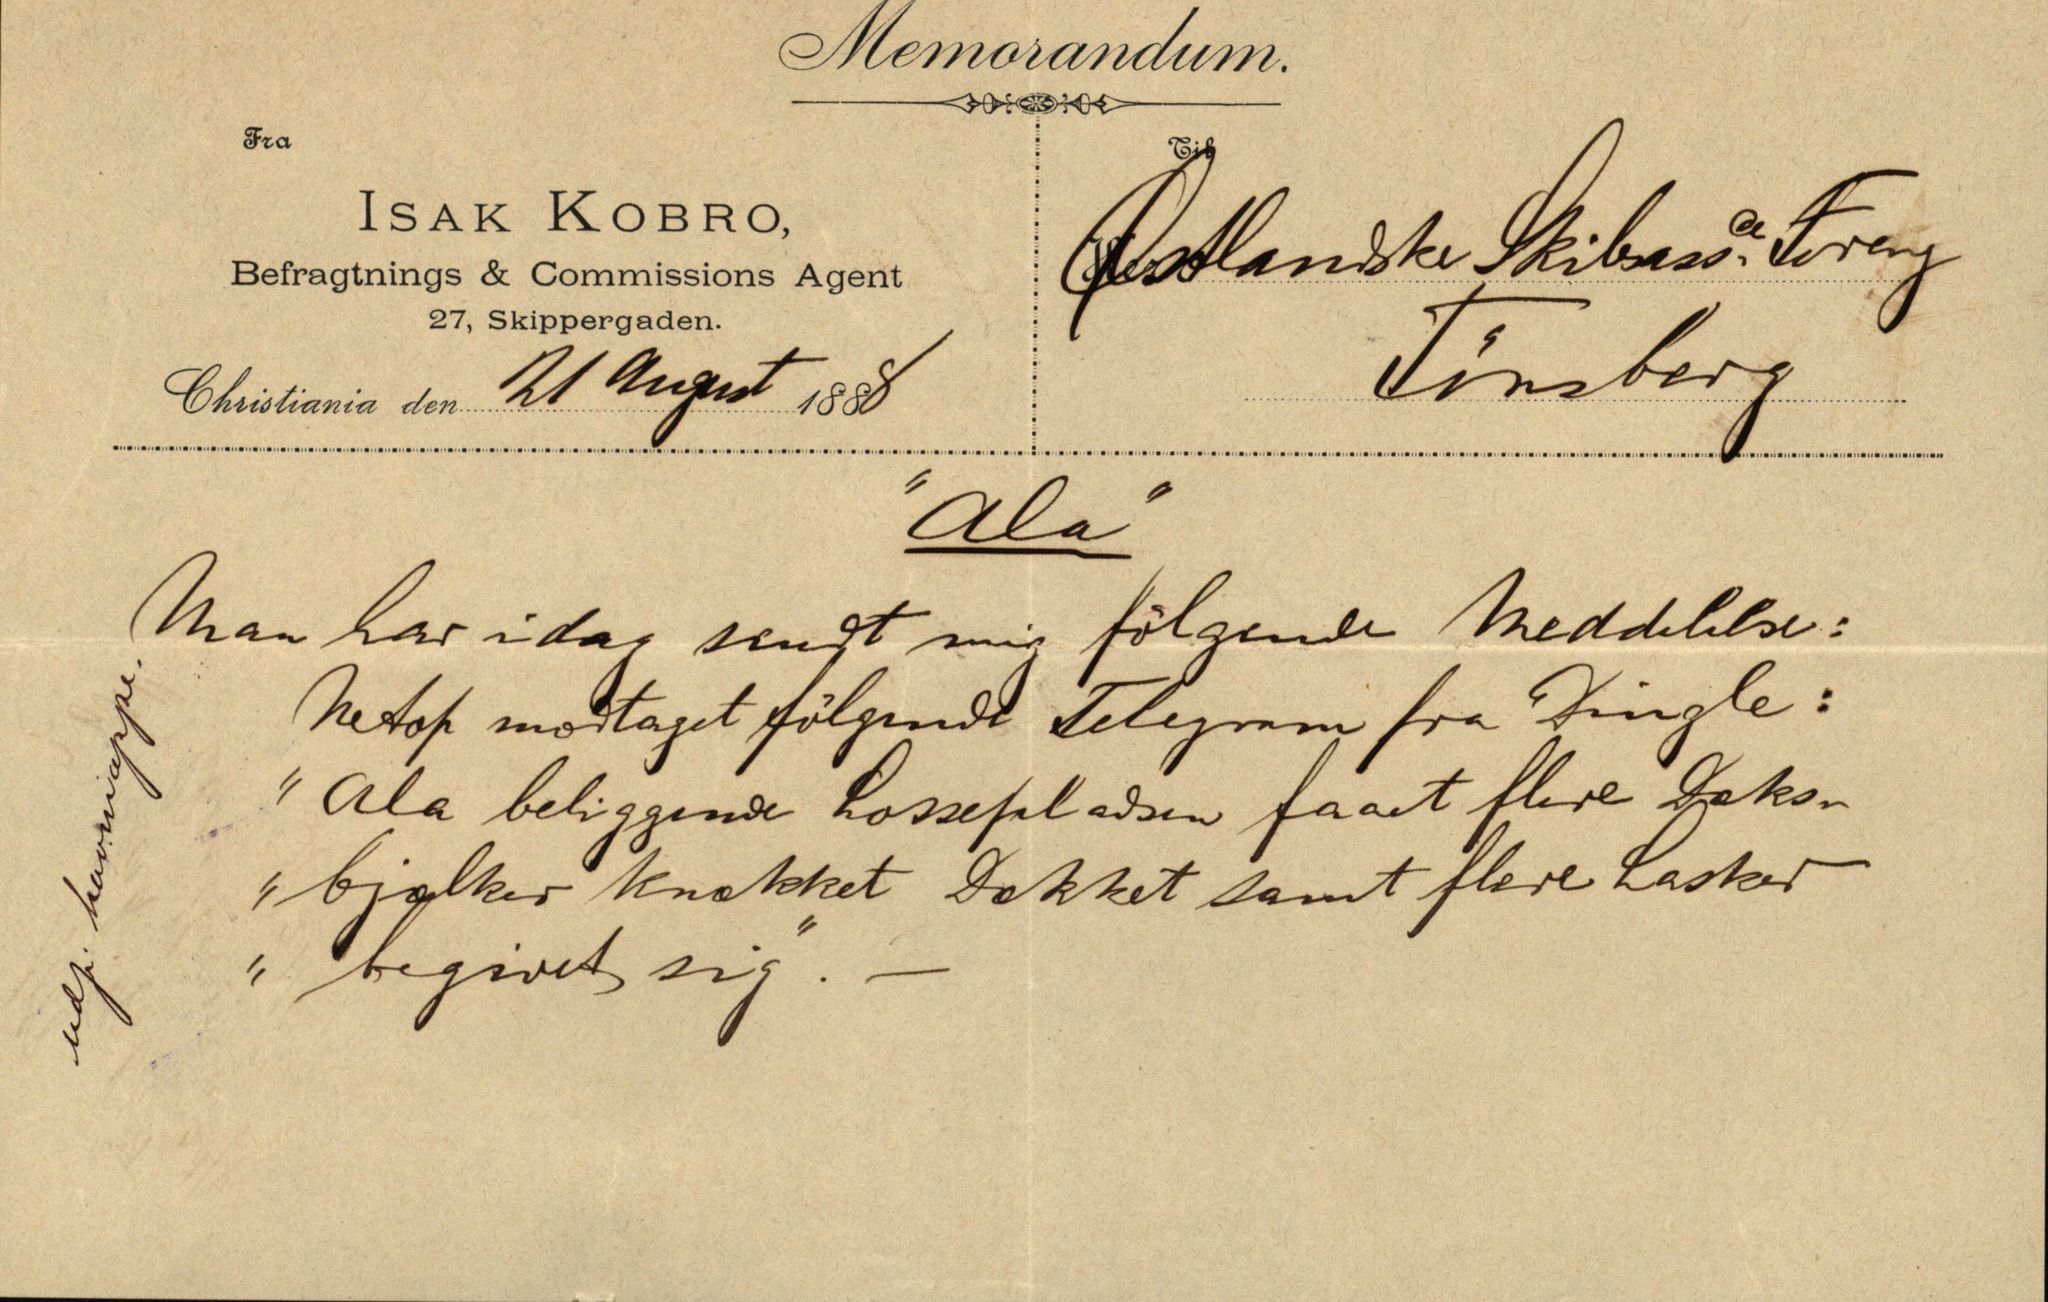 Memorandum.
Fra
Til
ISAK KOBRO,
Befragtnings & Commissions Agent
27, Skippergaden.
Christiania den 21 August 1888
Østlandske Skibsassce. Foreng
Tönsberg
"Ala"
Man har idag sendt mig fölgende Meddelelse:
Netop modtaget fölgende Telegram fra Dingle:
" Ala beliggende Lossepladsen faaet flere Dæks-
" bjælker knækket Dækket samt flere Lasker
" begivet sig". —
udp. havnappe.